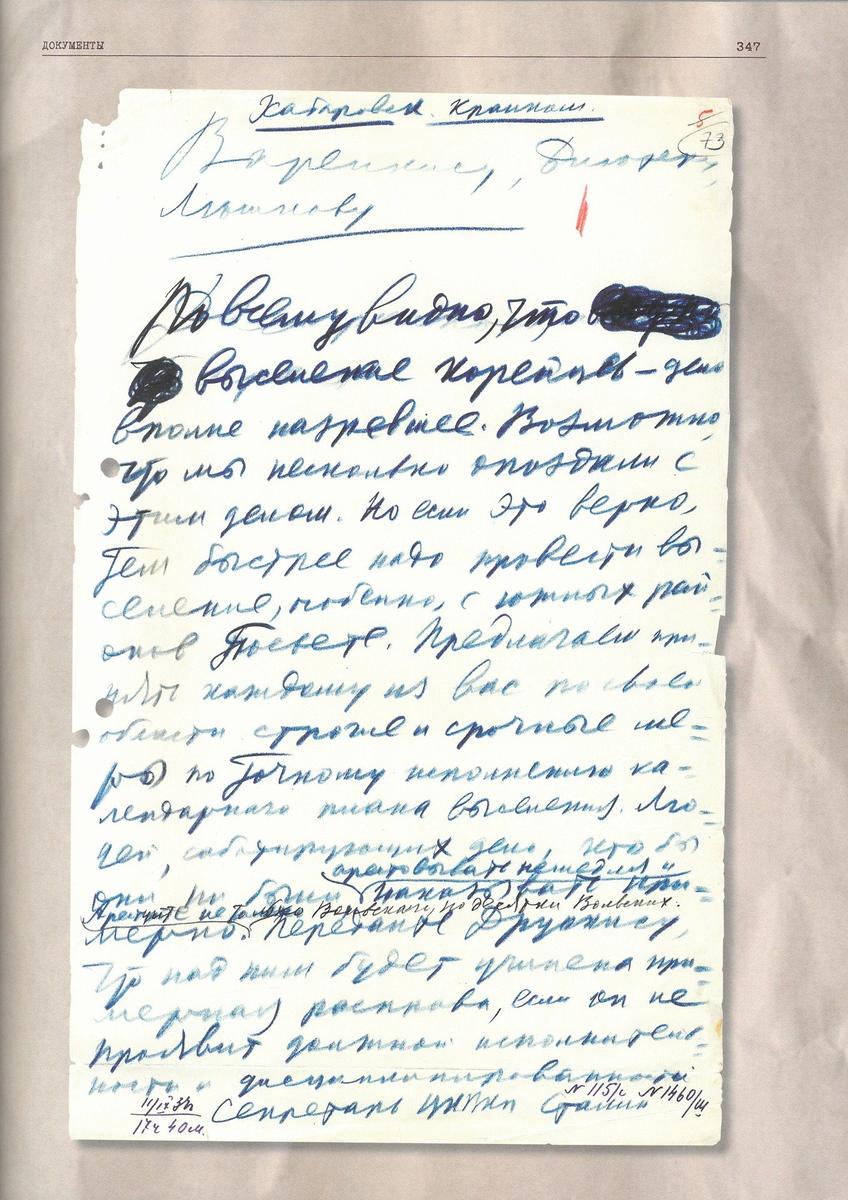 ДОКУМЕНТЫ 347
Хабаровск. Крайком.
5
73
Варейкису, Люшкову
По всему видно, что
выселение корейцев – дело
вполне назревшее. Возможно,
что мы несколько опоздали с
этим делом. Но если это верно,
тем быстрее надо провести вы-
селение, особенно, с южных рай-
онов Посьете. Предлагаем при-
нять каждому из вас по своей
области строгие и срочные ме-
ры по точному исполнению ка-
лендарного плана выселения. Лю-
дей, саботирующих дело, кто бы
арестовывать немедля и
они ни были наказывать при-
Арестуйте не только Вольского, но десятки Вольских.
мерно. Передайте
что над ним будет учинена при-
мерная расправа, если он не
проявит должной исполнитель-
ности и дисциплинированности
Секретарь ЦК ВКП Сталин
N 115/с N 1460/ш
11/IX 37 г.
17 ч 40 м.